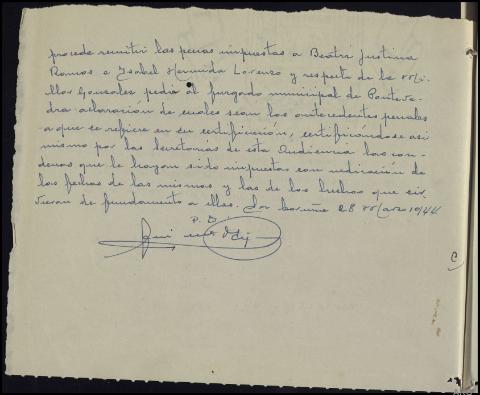 procede remitir las penas impuestas a Beatriz Justina
Ramos e Ysabel Hermida Lorenzo y respecto de la
llos Gonzalez pedir al juzgado municipal de Ponteve-
dra aclaración de cuales sean los antecedentes penales
a que se refiere en su certificación, certificándose asi
mismo por las Secretarias de esta Audiencia las con-
denas que le hayan sido impuestas con indicación de
las fechas de las mismas y las de los hechos que sir-
vieran de fundamento a ellas. La Coruña 28 Marzo 1944
P. D.